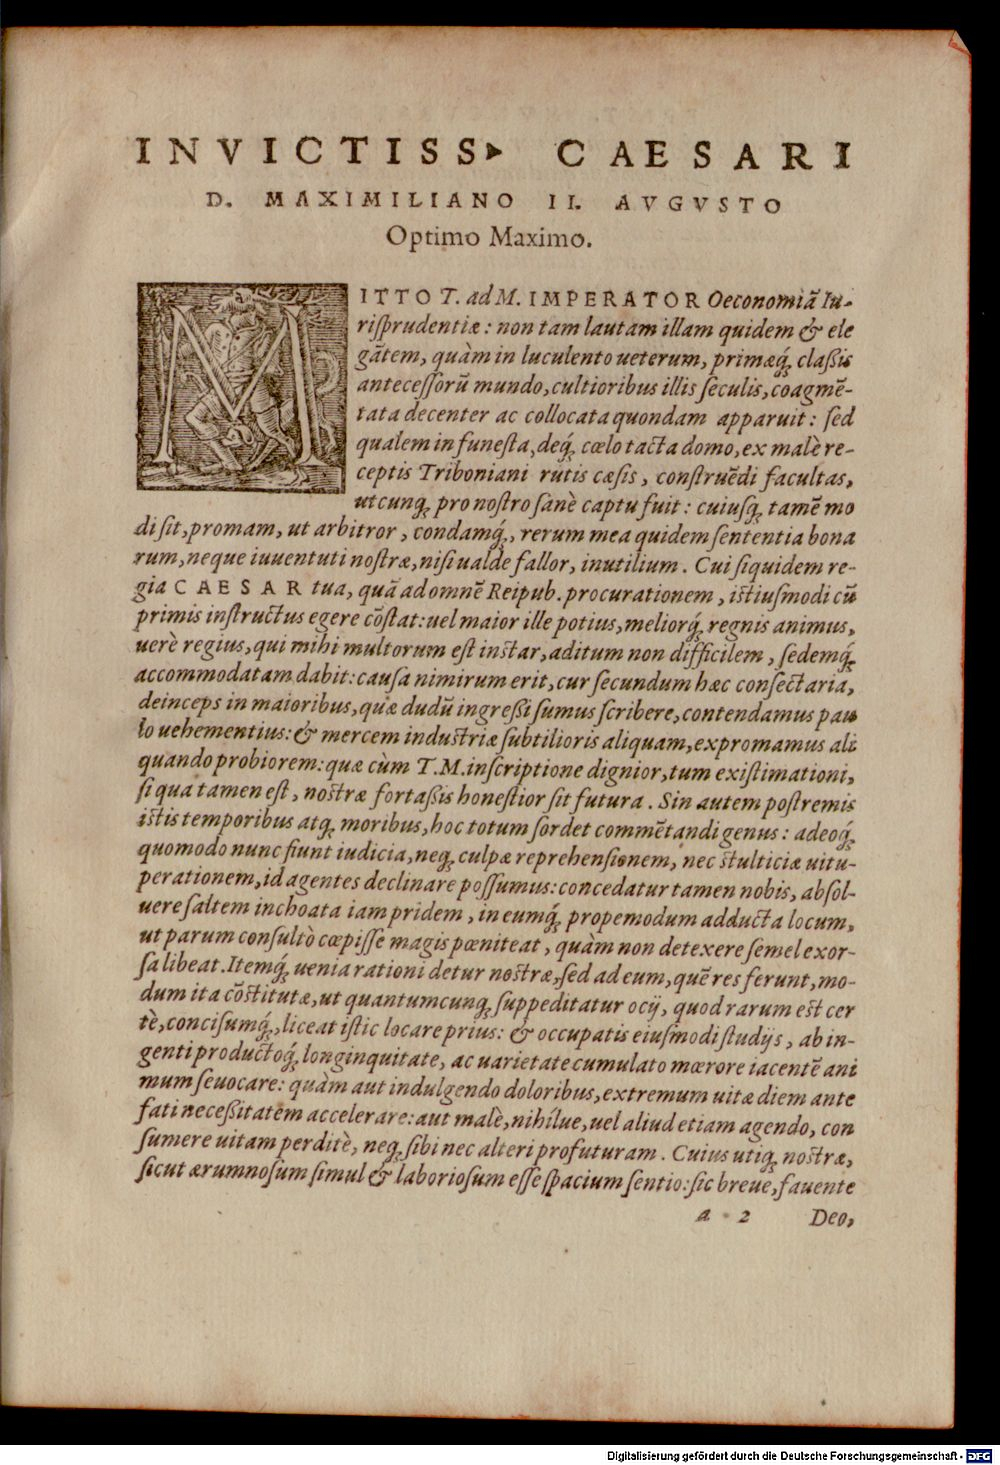 INVICTISS. CAESARI
D. MAXIMILIANO II. AVGVSTO
Optimo Maximo.
MITTO T. ad M. IMPERATOR Oeconomiã Iu-
riſprudentiæ: non tam lautam illam quidem & ele
gãtem, quàm in luculento ueterum, primæq́; claßis
anteceſſorũ mundo, cultioribus illis ſeculis, coagmẽ-
tata decenter ac collocata quondam apparuit: ſed
qualem in funeſta, deq́; cœlo tacta domo, ex malè re-
ceptis Triboniani rutis cæſis, conſtruẽdi facultas,
utcunq; pro noſtro ſanè captu fuit: cuiuſq; tamẽ mo
di ſit, promam, ut arbitror, condamq́;, rerum mea quidem ſententia bona
rum, neque iuuentuti noſtræ, niſi ualde fallor, inutilium. Cui ſiquidem re-
gia CAESAR tua, quã ad omnẽ Reipub. procurationem, iſtiuſmodi cũ
primis inſtructus egere cõſtat: uel maior ille potius, meliorq́; regnis animus,
uerè regius, qui mihi multorum eſt inſtar, aditum non difficilem, ſedemq́;
accommodatam dabit: cauſa nimirum erit, cur ſecundum hæc conſectaria,
deinceps in maioribus, quæ dudũ ingreßi ſumus ſcribere, contendamus pau
lo uehementius: & mercem induſtriæ ſubtilioris aliquam, expromamus ali
quando probiorem: quæ cùm T. M. inſcriptione dignior, tum exiſtimationi,
ſi qua tamen eſt, noſtræ fortaßis honeſtior ſit futura. Sin autem poſtremis
iſtis temporibus atq; moribus, hoc totum ſordet commẽtandi genus: adeoq́;
quomodo nunc fiunt iudicia, neq; culpæ reprehenſionem, nec ſtulticiæ uitu-
perationem, id agentes declinare poſſumus: concedatur tamen nobis, abſol-
uere ſaltem inchoata iam pridem, in eumq́; propemodum adducta locum,
ut parum conſultò cœpiſſe magis pœniteat, quàm non detexere ſemel exor-
ſa libeat. Itemq́; uenia rationi detur noſtræ, ſed ad eum, quẽ res ferunt, mo-
dum ita cõſtitutæ, ut quantumcunq; ſuppeditatur ocij, quod rarum eſt cer
tè, conciſumq́;, liceat iſtic locare prius: & occupatis eiuſmodi ſtudijs, ab in-
genti productoq́; longinquitate, ac uarietate cumulato mœrore iacentẽ ani
mum ſeuocare: quàm aut indulgendo doloribus, extremum uitæ diem ante
fati neceßitatem accelerare: aut malè, nihílue, uel aliud etiam agendo, con
ſumere uitam perditè, neq; ſibi nec alteri profuturam. Cuius utiq; noſtræ,
ſicut ærumnoſum ſimul & laborioſum eſſe ſpacium ſentio: ſic breue, fauente
a 2 Deo,
Digitalisierung gefördert durch die Deutsche Forschungsgemeinschaft - DFG